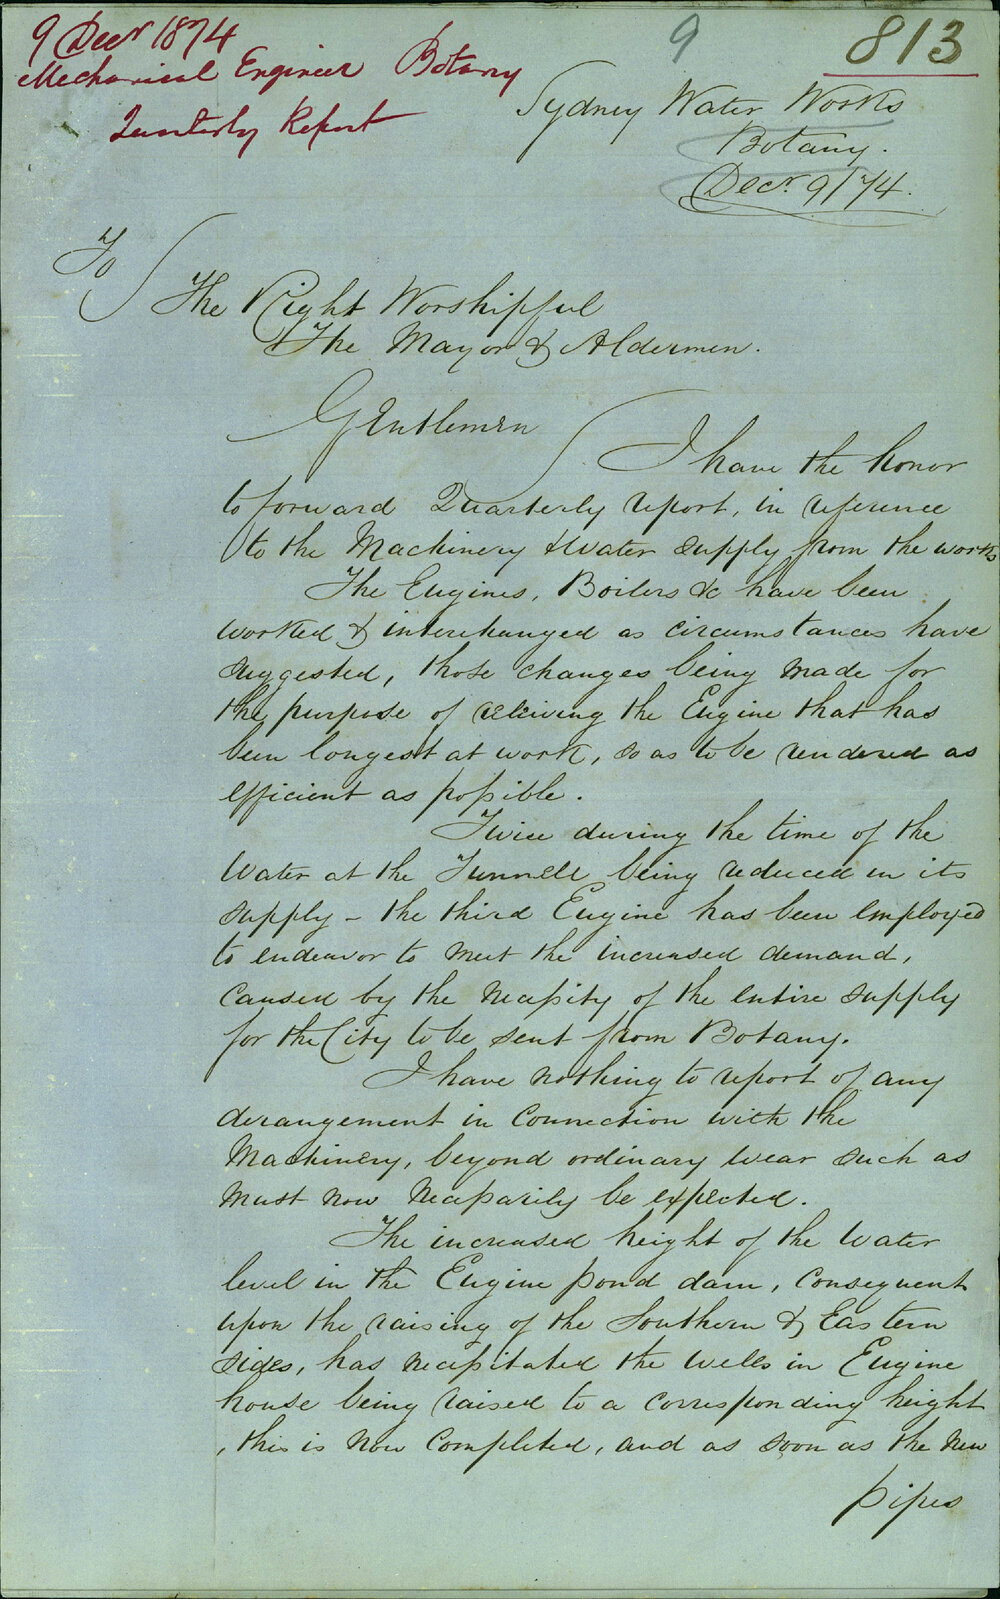 9 Decr 1874
Mechanical Engineer Botany
Quarterly Report
9
813
Sydney Water Works
Botany.
Decr. 9/74.
To
The Right Worshipful
The Mayor & Aldermen.
Gentlemen
I have the honor
to forward Quarterly report, in reference
to the Machinery & Water supply from the works
The Engines, Boilers &c have been
worked & interchanged as circumstances have
suggested, those changes being made for
the purpose of relieving the Engine that has
been longest at work, so as to be rendered as
efficient as possible.
Twice during the time of the
Water at the Tunnell being reduced in its
supply - the third Engine has been employed
to endeavor to meet the increased demand,
caused by the necessity of the entire supply
for the City to be sent from Botany.
I have nothing to report of any
derangement in connection with the
Machinery, beyond ordinary wear such as
must now necessarily be expected.
The increased height of the Water
level in the Engine pond dam, consequent
upon the raising of the Southern & Eastern
sides, has necessitated the wells in Engine
house being raised to a corresponding height
, this is now completed, and as soon as the new
pipes